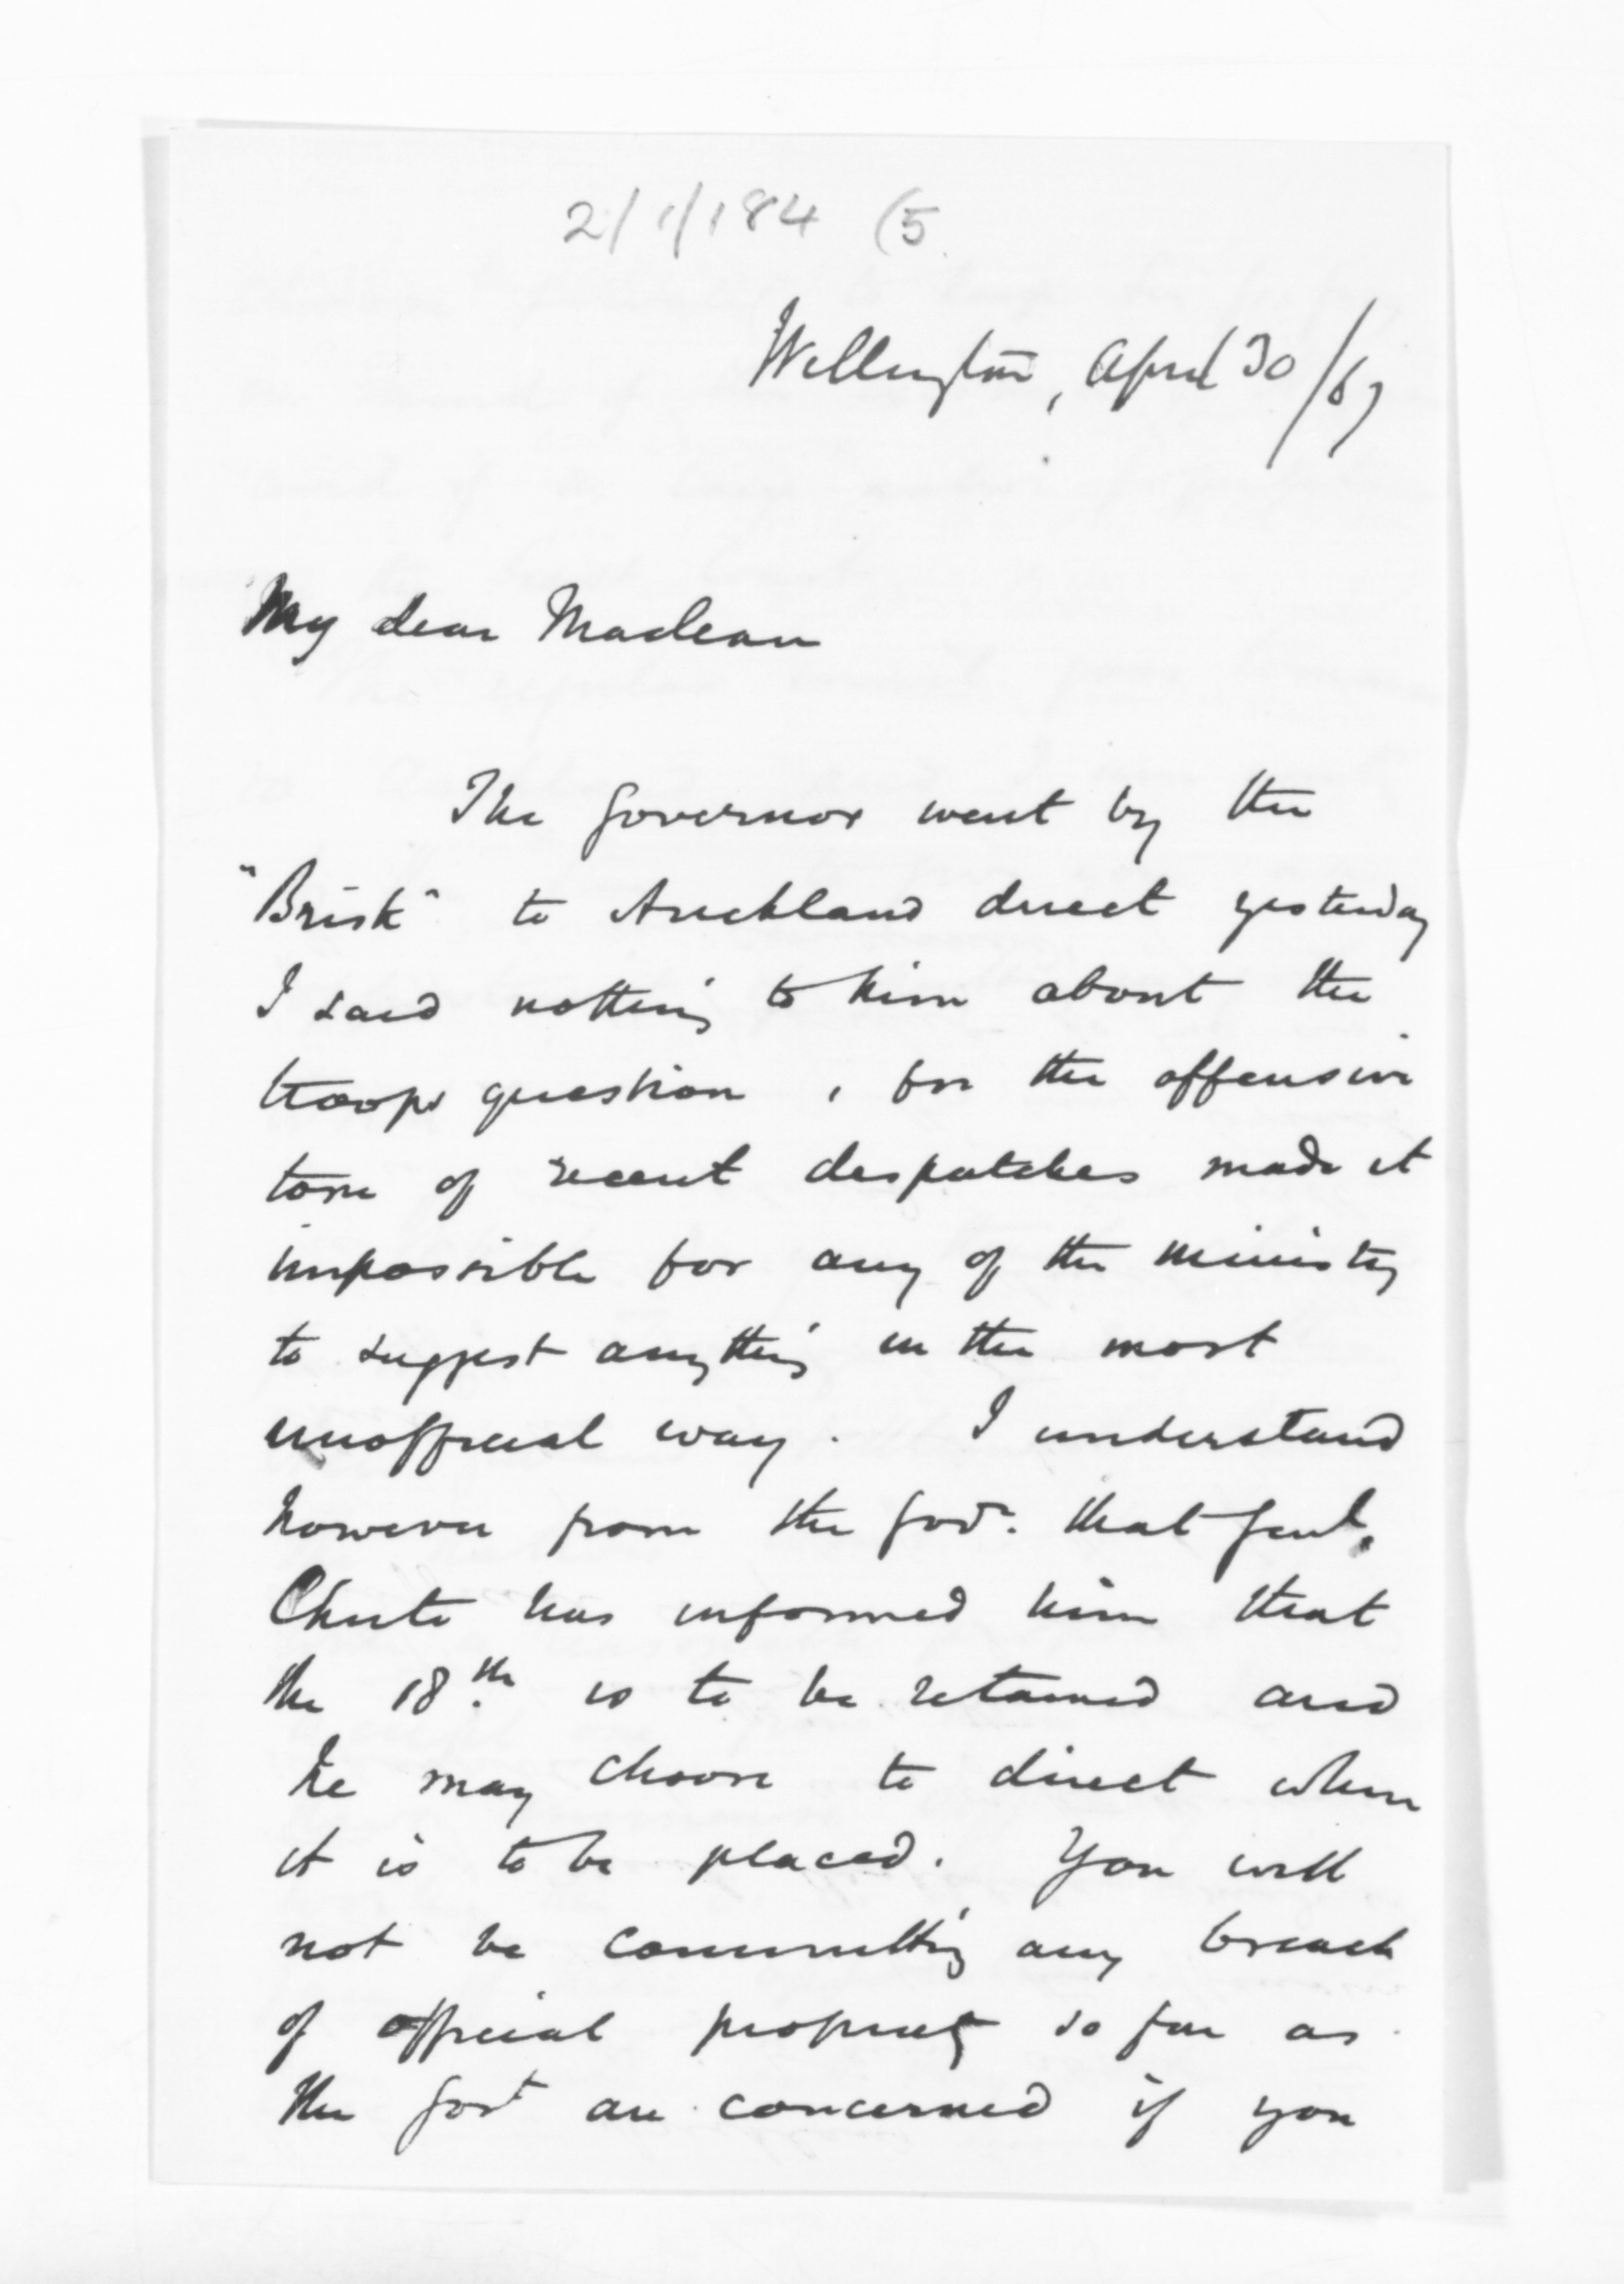 2/1/184 (5
Wellington, April 30/67
My dear Maclean
The Governor went by the
"Brisk" to Auckland direct yesterday
I said nothing to him about the
troops question, for the offensive
tone of recent despatches made it
impossible for any of the ministry
to suggest anything in the most
unofficial way. I understand
however from the Govr. that Genl.
Chute has informed him that
the 18th. is to be retained and
he may choose to direct where
it is to be placed. You will
not be committing any breach
of official propriety so far as
the Govt are concerned if you